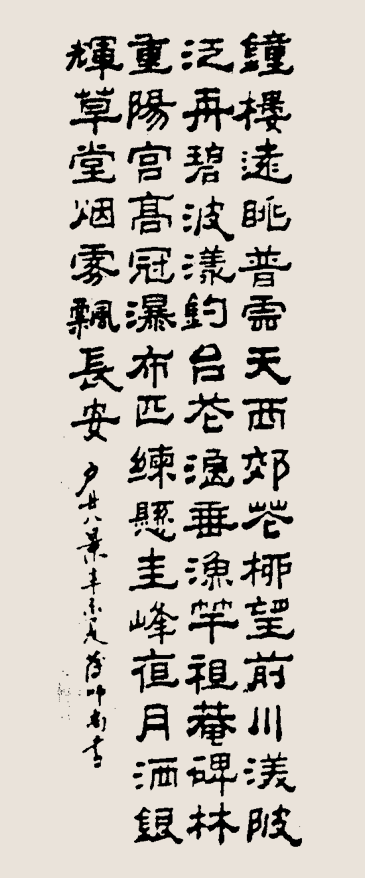 鐘樓遠眺普雲天西郊花柳望前川渼陂
泛舟碧波漾釣台花垂漁竿祖菴碑林
重陽宮高冠瀑布匹練懸圭峰夜月洒銀
輝草堂烟雾飄長安 八景辛未夏書